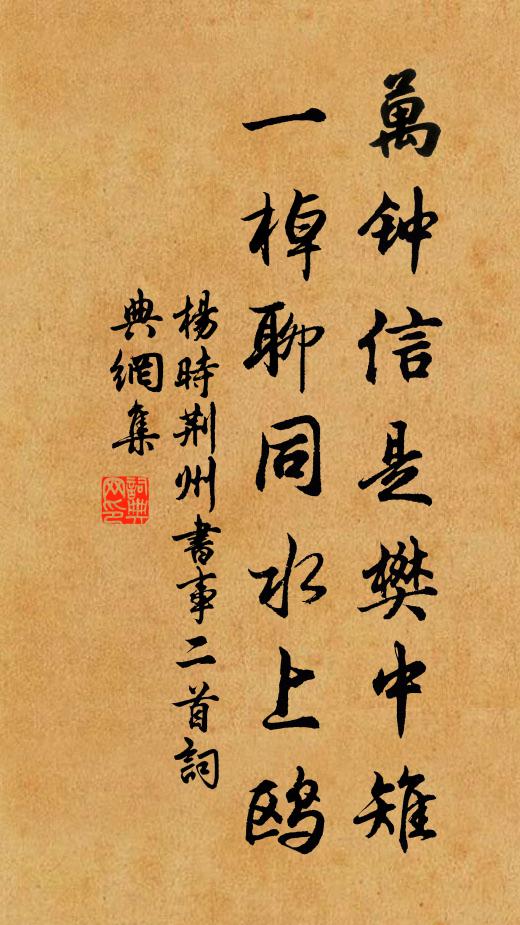 萬钟信是樊中雉
一棹聊同水上鸥
楊時荆州書事二首詞
典網集
詞典
网印